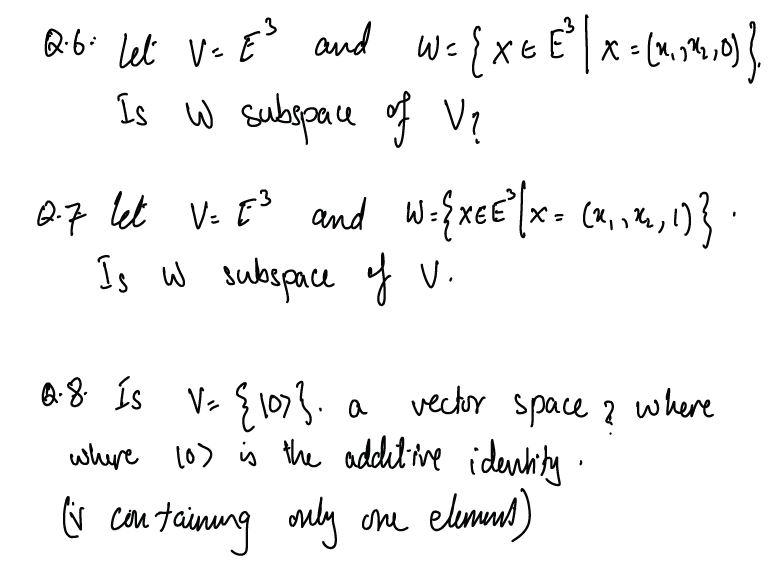 Q.6: Let V = E³ and W = { x ∈ E³ | x = (x₁, x₂, 0) }.
Is W subspace of V?
Q.7 let V = E³ and W = { x ∈ E³ | x = (x₁, x₂, 1) } .
Is W subspace of V.
Q.8. Is V = { |0> }. a vector space ? where
where |0> is the additive identity .
containing only one element)